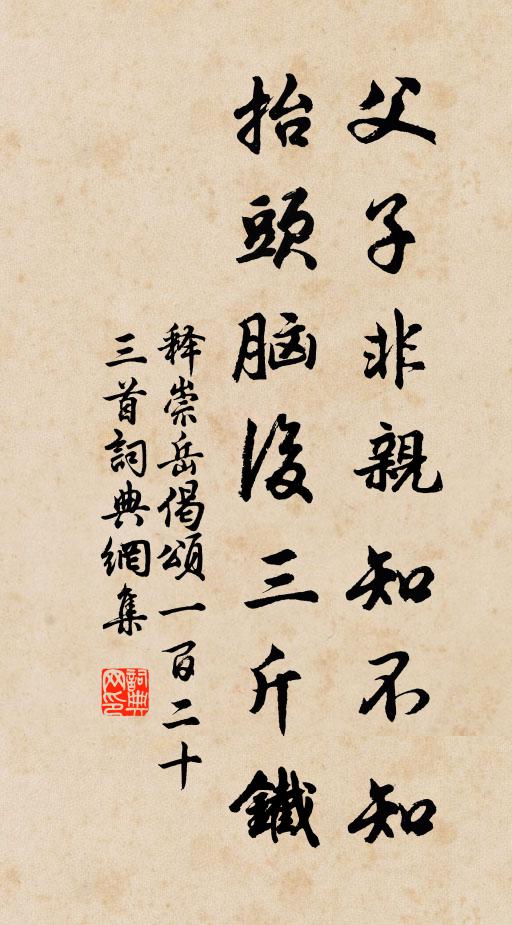 父子非親知不知
抬頭脑後三斤鐵
释崇岳偈頌一百二十
三首詞典網集
詞典网印